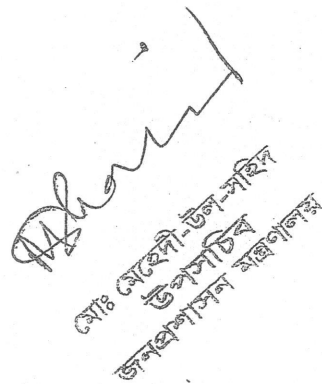 মোঃ মেহেদী-উল-সহিদ
উপসচিব
জনপ্রশাসন মন্ত্রণালয়